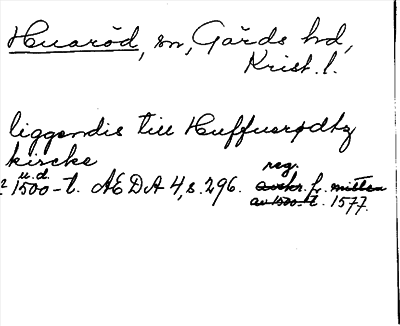 Huaröd, sn, Gärds hd,
Krist. l.
liggendis till Huffuerødtz
kircke
u.d.
? 1500-t. AEDA 4, s. 296. avskr. fr. mitten
reg.
av 1500-t. 1577.